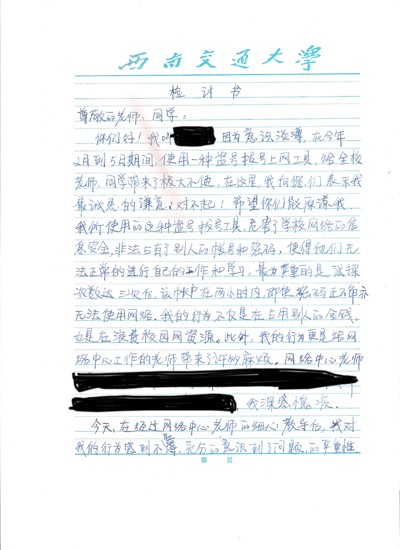 西南交通大学
检讨书
尊敬的老师、同学:
你们好!我叫 因为意识淡薄,在今年
2月到5月期间,使用一种盗号拨号上网工具,给全校
老师、同学带来了极大不便,在这里,我向你们表示我
最诚恳的谦意:对不起!希望你们能原谅我。
我所使用的这种盗号拨号工具,危害了学校网络的信
息安全,非法占有了别人的帐号和密码,使得他们无
法正常的进行自己的工作和学习,最为严重的是,试探
次数达三次后,该帐户在两小时内,即使密码正确亦
无法使用网络,我的行为不仅是在占用别人的金钱,
也是在浪费校园网资源。此外,我的行为更是给网
络中心工作的老师带来了许多麻烦。网络中心老师
我深感愧疚。
今天,在经过网络中心老师的细心教导后,我对
我的行为感到不辱,充分的意识到了问题的严重性
第 页